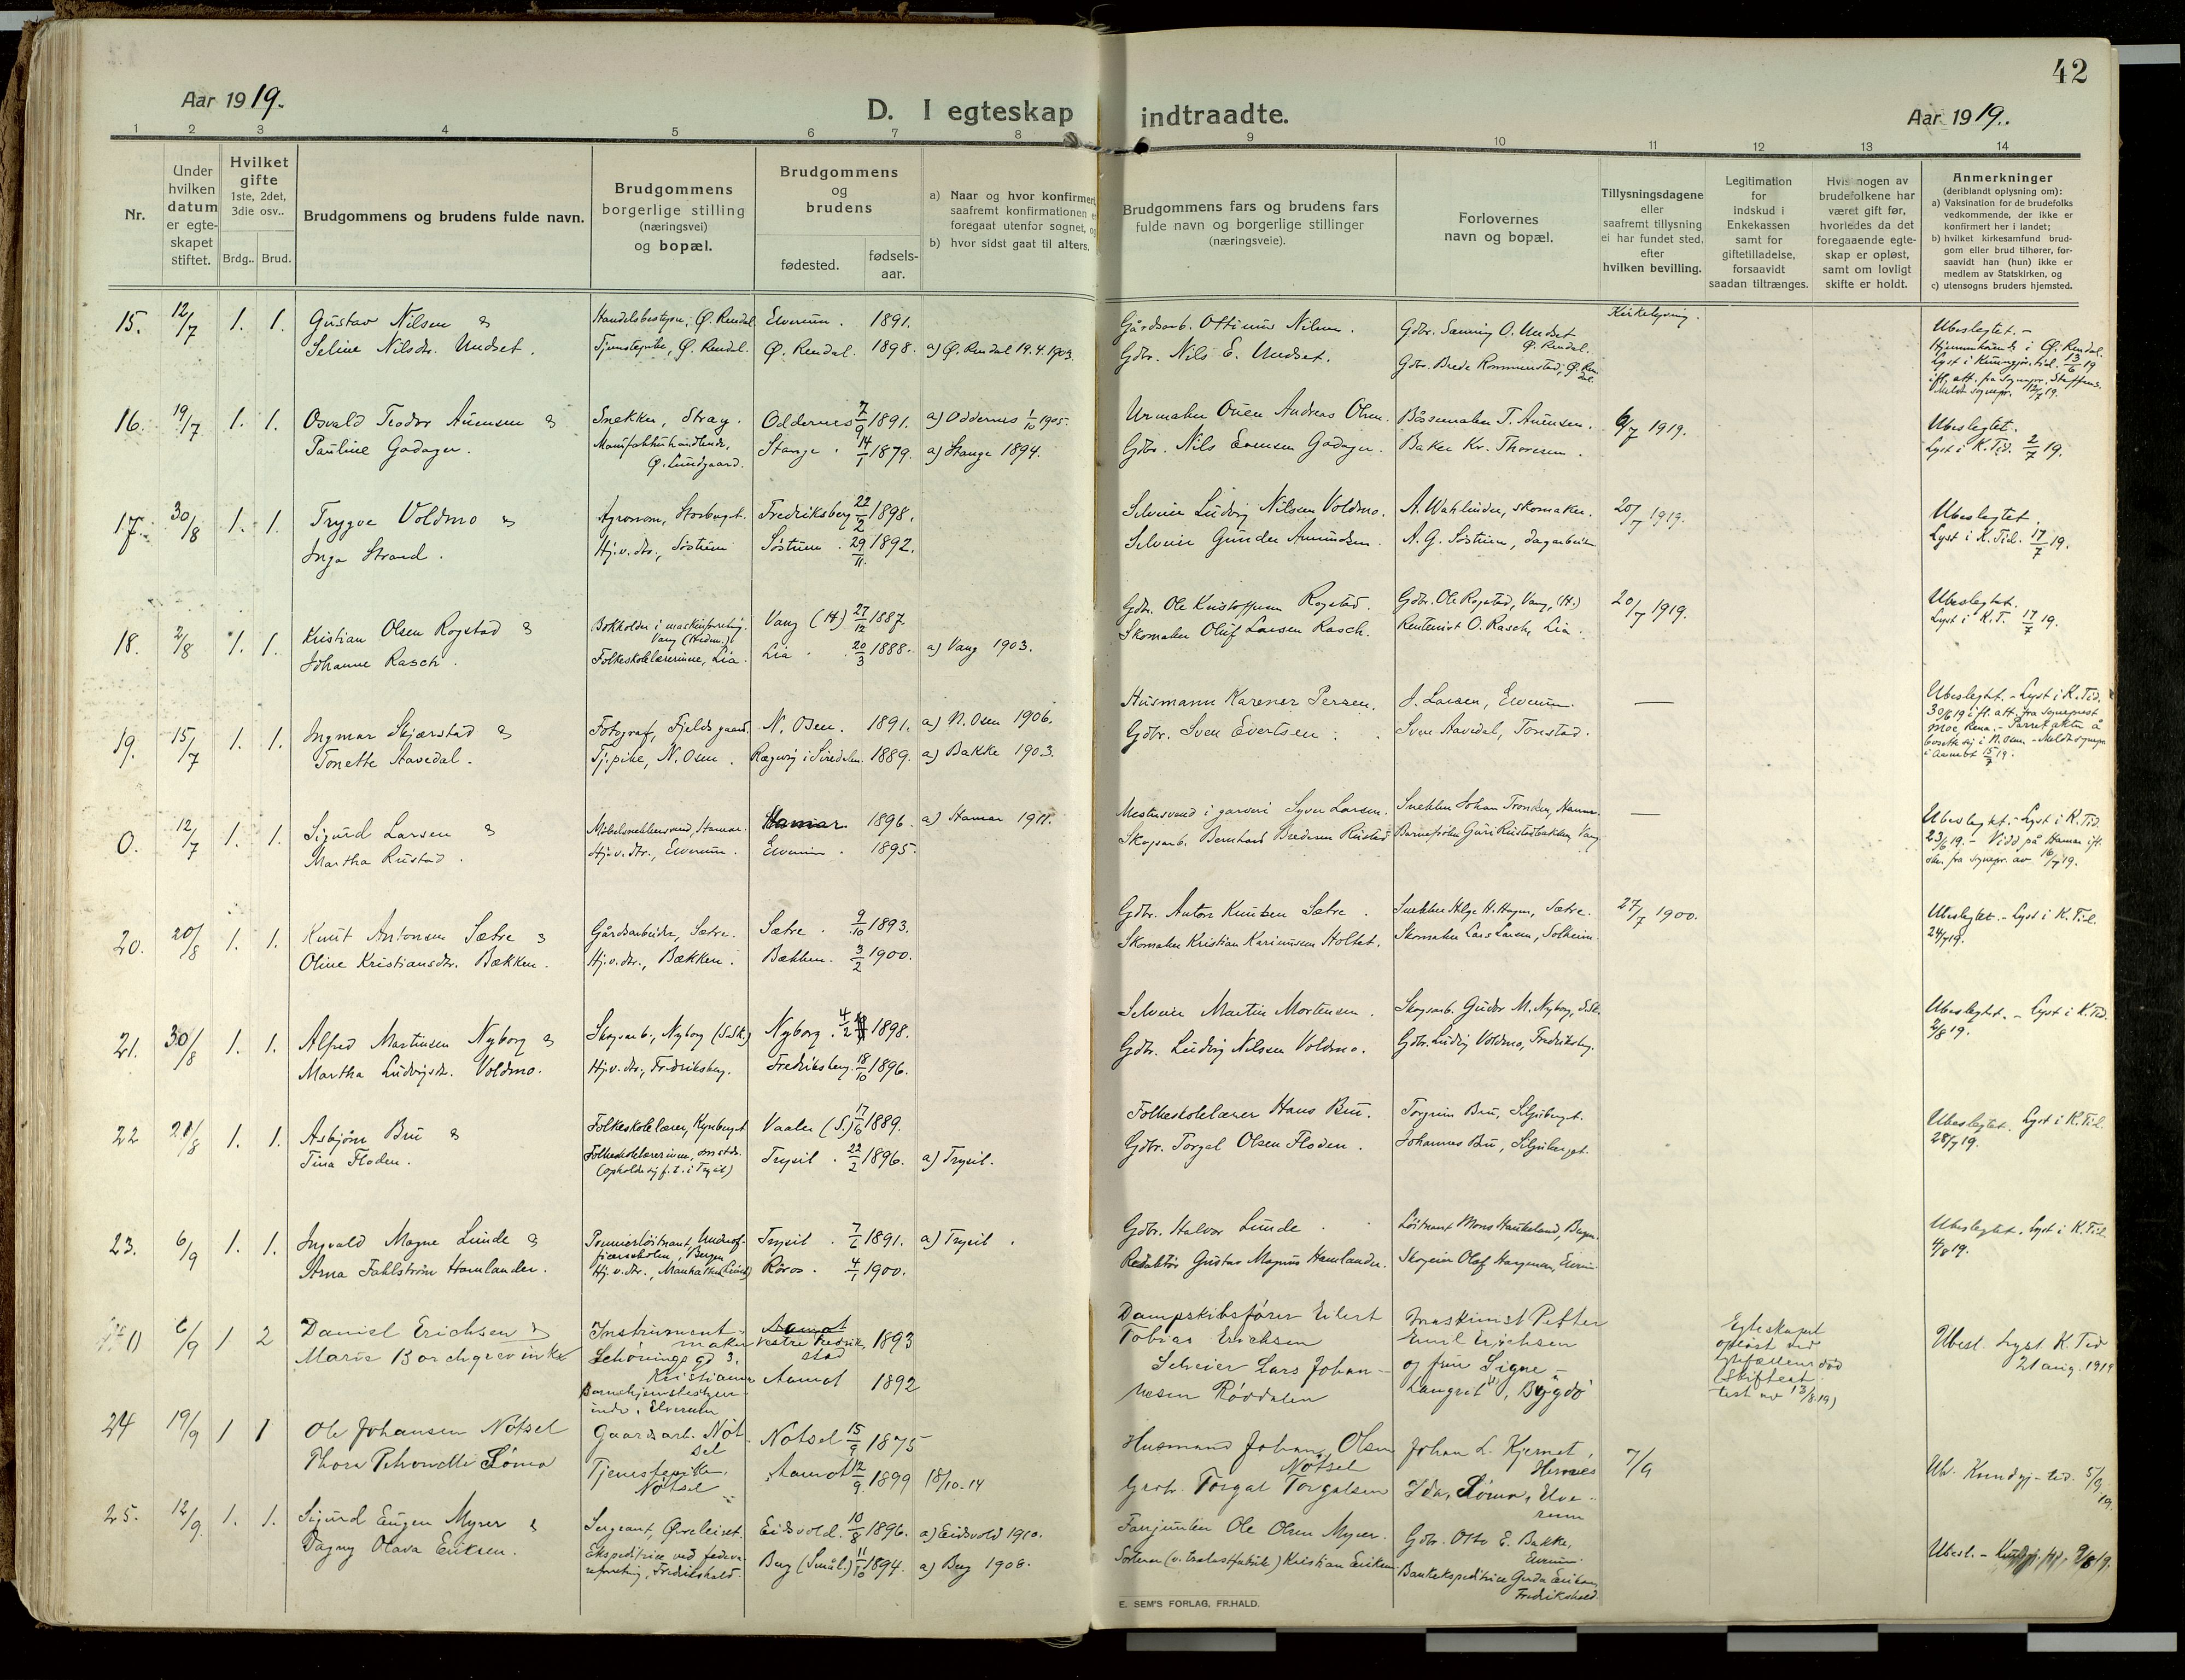 42
Aar 1919.
D. I egteskap indtraadte.
Aar 1919.
1 2 3 4 5 6 7 8 9 10 11 12 13 14
Nr.
Under hvilken datum er egte-skapet stiftet.
Hvilket gifte 1ste, 2det, 3die osv..
Brdg.. Brud.
Brudgommens og brudens fulde navn.
Brudgommens borgerlige stilling (næringsvei) og bopæl.
Brudgommens og brudens
fødested.
fødsels-aar.
a) Naar og hvor konfirmert, saafremt konfirmationen er foregaat utenfor sognet, og
b) hvor sidst gaat til alters.
Brudgommens fars og brudens fars fulde navn og borgerlige stillinger (næringsveie).
Forlovernes navn og bopæl.
Tillysningsdagene eller saafremt tillysning ei har fundet sted, efter hvilken bevilling.
Legitimation for indskud i Enkekassen samt for giftetilladelse, forsaavidt saadan tiltrænges.
Hvis nogen av brudefolkene har været gift før, hvorledes da det foregaaende egte-skap er opløst, samt om lovligt skifte er holdt.
Anmerkninger (deriblandt oplysning om):
a) Vaksination for de brudefolks vedkommende, der ikke er konfirmert her i landet;
b) hvilket kirkesamfund brud-gom eller brud tilhører, for-saavidt han (hun) ikke er medlem av Statskirken, og
c) utensogns bruders hjemsted.
15. 12/7 1. 1. Gustav Nilsen & Handelsbestyrer, Ø. Rendal Elverum. 1891. Gårdsarb. Ottinius Nilsen. Gdbr. Sæming O. Undset, Ø. Rendal. Kirkelysning. Ubeslegtet.
Seline Nilsdtr. Undset. Tjenestepike, Ø. Rendal. Ø. Rendal. 1898. a) Ø. Rendal 19.4.1903. Gdbr. Nils E. Undset. Gdbr. Brede Rommenstad, Ø. Rendal.
16. 19/7 1. 1. Osvald Teodor Auensen & Snekker, Stray. Oddernes 7/9 1891. a) Oddernes 1/10 1905. Urmaker Ouen Andreas Olsen. Bøssemaker T. Auensen. 6/7 1919. Ubeslegtet.
Pauline Gadager. Manufakturhandlende, Ø. Lundgaard. Stange. 14/1 1879. a) Stange 1894. Gdbr. Nils Evensen Gadager. Baker Kr. Thoresen. Lyst i K.Tid. 2/7 19.
17. 30/8 1. 1. Trygve Voldmo & Agronom, Storberget. Fredriksberg 22/2 1898. Selveier Ludvig Nilsen Voldmo. A. Wahlinder, skomaker. 20/7 1919. Ubeslegtet.
Inga Strand. Hj.v.dtr., Søstuen Søstuen. 29/11 1892. Selveier Gunder Amundsen. A. G. Søstuen, dagarbeider Lyst i K.Tid. 17/7 19.
18. 2/8 1. 1. Kristian Olsen Rogstad & Bokholder i maskinforretng. Vang (Hedm.) Vang (H) 27/12 1887. Gdbr. Ole Kristoffersen Rogstad. Gdbr. Ole Rogstad, Vang, (H.) 20/7 1919. Ubeslegtet.
Johanne Rasch. Folkeskolelærerinne, Lia. Lia. 20/3 1888. a) Vang 1903. Skomaker Oluf Larsen Rasch. Rentenist O. Rasch, Lia. Lyst i K.T. 17/7 19.
19. 15/7 1. 1. Ingmar Skjærstad & Fotograf, Fjeldsgaard. N. Osen. 1891. a) N. Osen 1906. Husmann Karener Persen. J. Larsen, Elverum. — Ubeslegtet. - Lyst i K.Tid.
Tonette Aavedal. Tj.pike, N. Osen. 1889. a) Bakke 1903. Gdbr. Sven Evertsen. Sven Aavedal, Tonstad.
0. 12/7 1. 1. Sigurd Larsen & Møbelsnekkersvend, Hamar. Hamar. 1896. a) Hamar 1911. Mestersvend i garveri Syver Larsen. Snekker Johan Tronsen, Hamar. — Ubeslegtet. - Lyst i K.Tid.
Martha Rustad. Hj.v.dtr., Elverum. Elverum. 1895. Skogsarb. Bernhard Rustad 23/6 19. - Vidd på Hamar ift.
20. 20/8 1. 1. Knut Antonsen Sætre & Gårdsarbeider, Sætre. Sætre. 9/10 1893. Gdbr. Anton Knutsen Sætre. Snekker Helge H. Hagen, Sætre. 27/7 1900. Ubeslegtet. - Lyst i K.Tid.
Oline Kristiansdtr. Bækken. Hj.v.dtr., Bækken. Bækken. 3/2 1900. Skomaker Kristian Karinusen Holtet. Skomaker Lars Larsen, Solheim. 24/7 19.
21. 30/8 1. 1. Alfred Martinsen Nyborg & Skogsarb., Nyborg (S.Sk.) Nyborg. 4/2 1898. Selveier Martin Mortensen. Skogsarb. Gudor M. Nyborg, S.Sk. Ubeslegtet. - Lyst i K.Tid.
Martha Ludvigsdtr. Voldmo. Hj.v.dtr., Fredriksberg. Fredriksberg. 18/10 1896. Gdbr. Ludvig Nilsen Voldmo. Gdbr. Ludvig Voldmo, Fredriksberg. 2/8 19.
22 21/8 1. 1. Asbjørn Bru & Folkeskolelærer, Kynberget Vaaler (S.) 17/6 1889. Folkeskolelærer Hans Bru. Torgrim Bru, Siljuberget. Ubeslegtet. Lyst i K.Tid.
Tina Floden. Folkeskolelærerinne, (opholder sig f.t. i Trysil) Trysil. 22/2 1896. a) Trysil. Gdbr. Torgal Olsen Floden. Johannes Bru, Siljuberget. 28/7 19.
23. 6/9 1. 1. Ingvald Magne Lunde & Premierløitnant, Underof-ficersskolen, Bergen Trysil. 7/6 1891. a) Trysil. Gdbr. Halvor Lunde Løitnant Mons Haukeland, Bergen. Ubeslegtet. Lyst i K.Tid.
Anna Fahlström Hamlander. Hj.v.dtr., Røros. 4/1 1900. Redaktør Gustav Magnus Hamlander. Skogeier Olaf Haugmann, Elverum 4/8 19.
0 6/9 1 2 Daniel Erichsen & Instrument-maker Aamot Vestre Fredrik-stad 1893 Dampskibsfører Eilert Tobias Erichsen Maskinist Petter Emil Erichsen Egteskapet opløst ved egtefællens død (Skifteat-test av 13/8.19) Ubesl. Lyst K. Tid 21 aug. 1919
Marie Borchgrevink Schønings gd 3, Kristiania Barnehjemsbestyrer-inde, Elverum Aamot 1892 Selveier Lars Johan-nesen Røddalen og fru Signe Langret, Bygdø
24 19/9 1 1 Ole Johansen Nötsel Gaardsarb. Nöt-sel Nötsel 15/9 1875 Husmand Johan Olsen Nötsel Johan L. Kjernet, Hernes 7/9 Ub. Kundgj-tid. 5/9 19.
Thora Petronelle Löma Tjenestepike, Nötsel Aamot 12/9 1899 18/10-14 Gaardbr. Torgal Torgalsen Ida Löma, Elve-rum
25. 12/9 1. 1. Sigurd Eugen Myrer & Sergeant, Øvreleiret. Eidsvold. 10/8 1896. a) Eidsvold 1910. Fanejunker Ole Olsen Myrer. Gdbr. Otto E. Bakke, Elverum.
Dagny Olava Eriksen. Ekspeditrice ved fedeva-reforretng, Fredrikshald. Berg (Smål.) 11/10 1894. a) Berg 1908. Sorterer (v. trelastfabrik) Kristian Eriksen Bankekspeditrice Gerda Eriksen, Fredrikshald. Ubesl. - 9/8 19.
E. SEM'S FORLAG, FR.HALD.